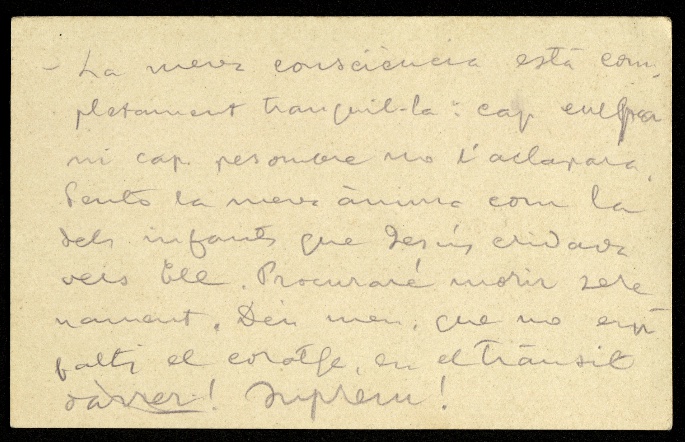 - La meva consciència està com-
pletament tranquil-la: cap culpa
ni cap pesombre no l'aclapara.
Sento la meva ànima com la
dels infants que Jesús cridava
veis Ell. Procuraré morir sere
nament. Déu meu, que no em
falti el coratge, en el trànsit
darrer! Suprem!